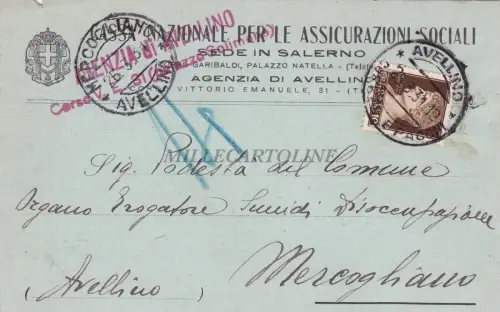 NAZIONALE PER LE ASSICURAZIONI SOCIALI
SEDE IN SALERNO
GARIBALDI, PALAZZO NATELLA - (Telef
AGENZIA DI AVELLINO
VITTORIO EMANUELE, 31 - (T
AGENZIA DI AVELLINO
Corso V. E.
MERCOGLIANO
AVELLINO
AVELLINO
PACCHI
MILLECARTOLINE
Sig. Podestà del Comune
Organo Erogatore Sussidi Disoccupazione
Mercogliano
(Avellino)